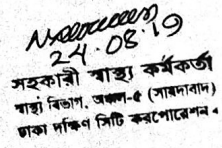 24.08.19
সহকারী স্বাস্থ্য কর্মকর্তা
স্বাস্থ্য বিভাগ, অঞ্চল-৫ (সায়েদাবাদ)
ঢাকা দক্ষিণ সিটি কর্পোরেশন।